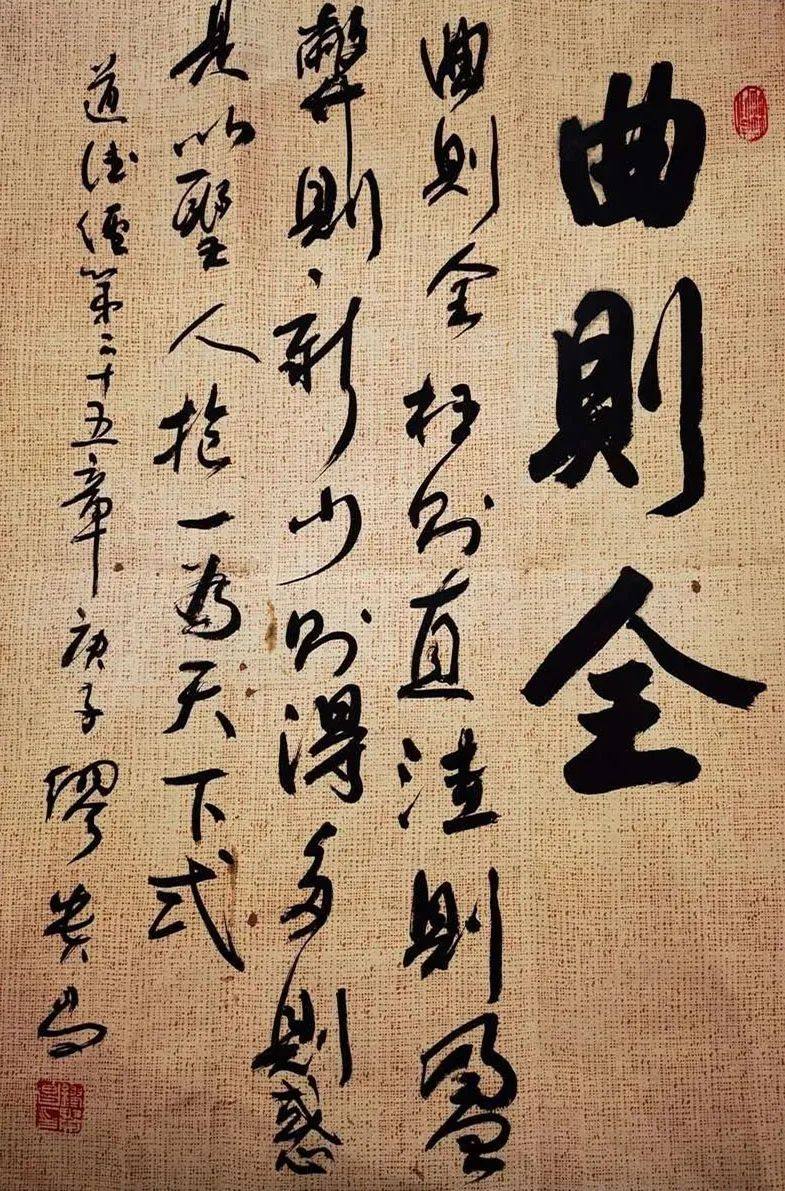 曲則全
曲則全枉則直洼則盈
弊則新少則得多則惑
是以聖人抱一為天下式
道德經第二十五章庚子缪贵書